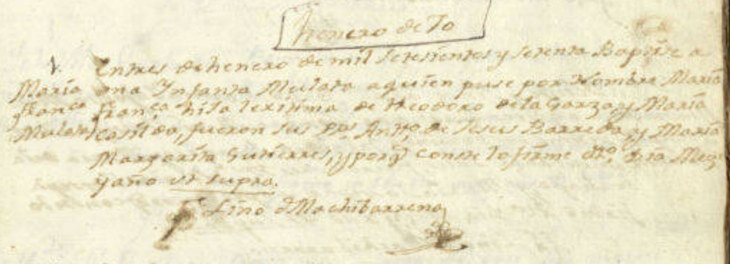 henero de 70
1.
Maria
franca
Mulata
En tres de henero de mil setesientos y setenta Baptize a
una Infanta Mulata a quien puse por Nombre Maria
Franca hija lexitima de Theodoro de la Garza y Maria
Casilda, fueron sus Ps. Antto. de Jesus Barreda, y Maria
Margarita Gutierres, y porq conste lo firme dho. dia Mes
y año ut supra.
Lino d Machibarrena